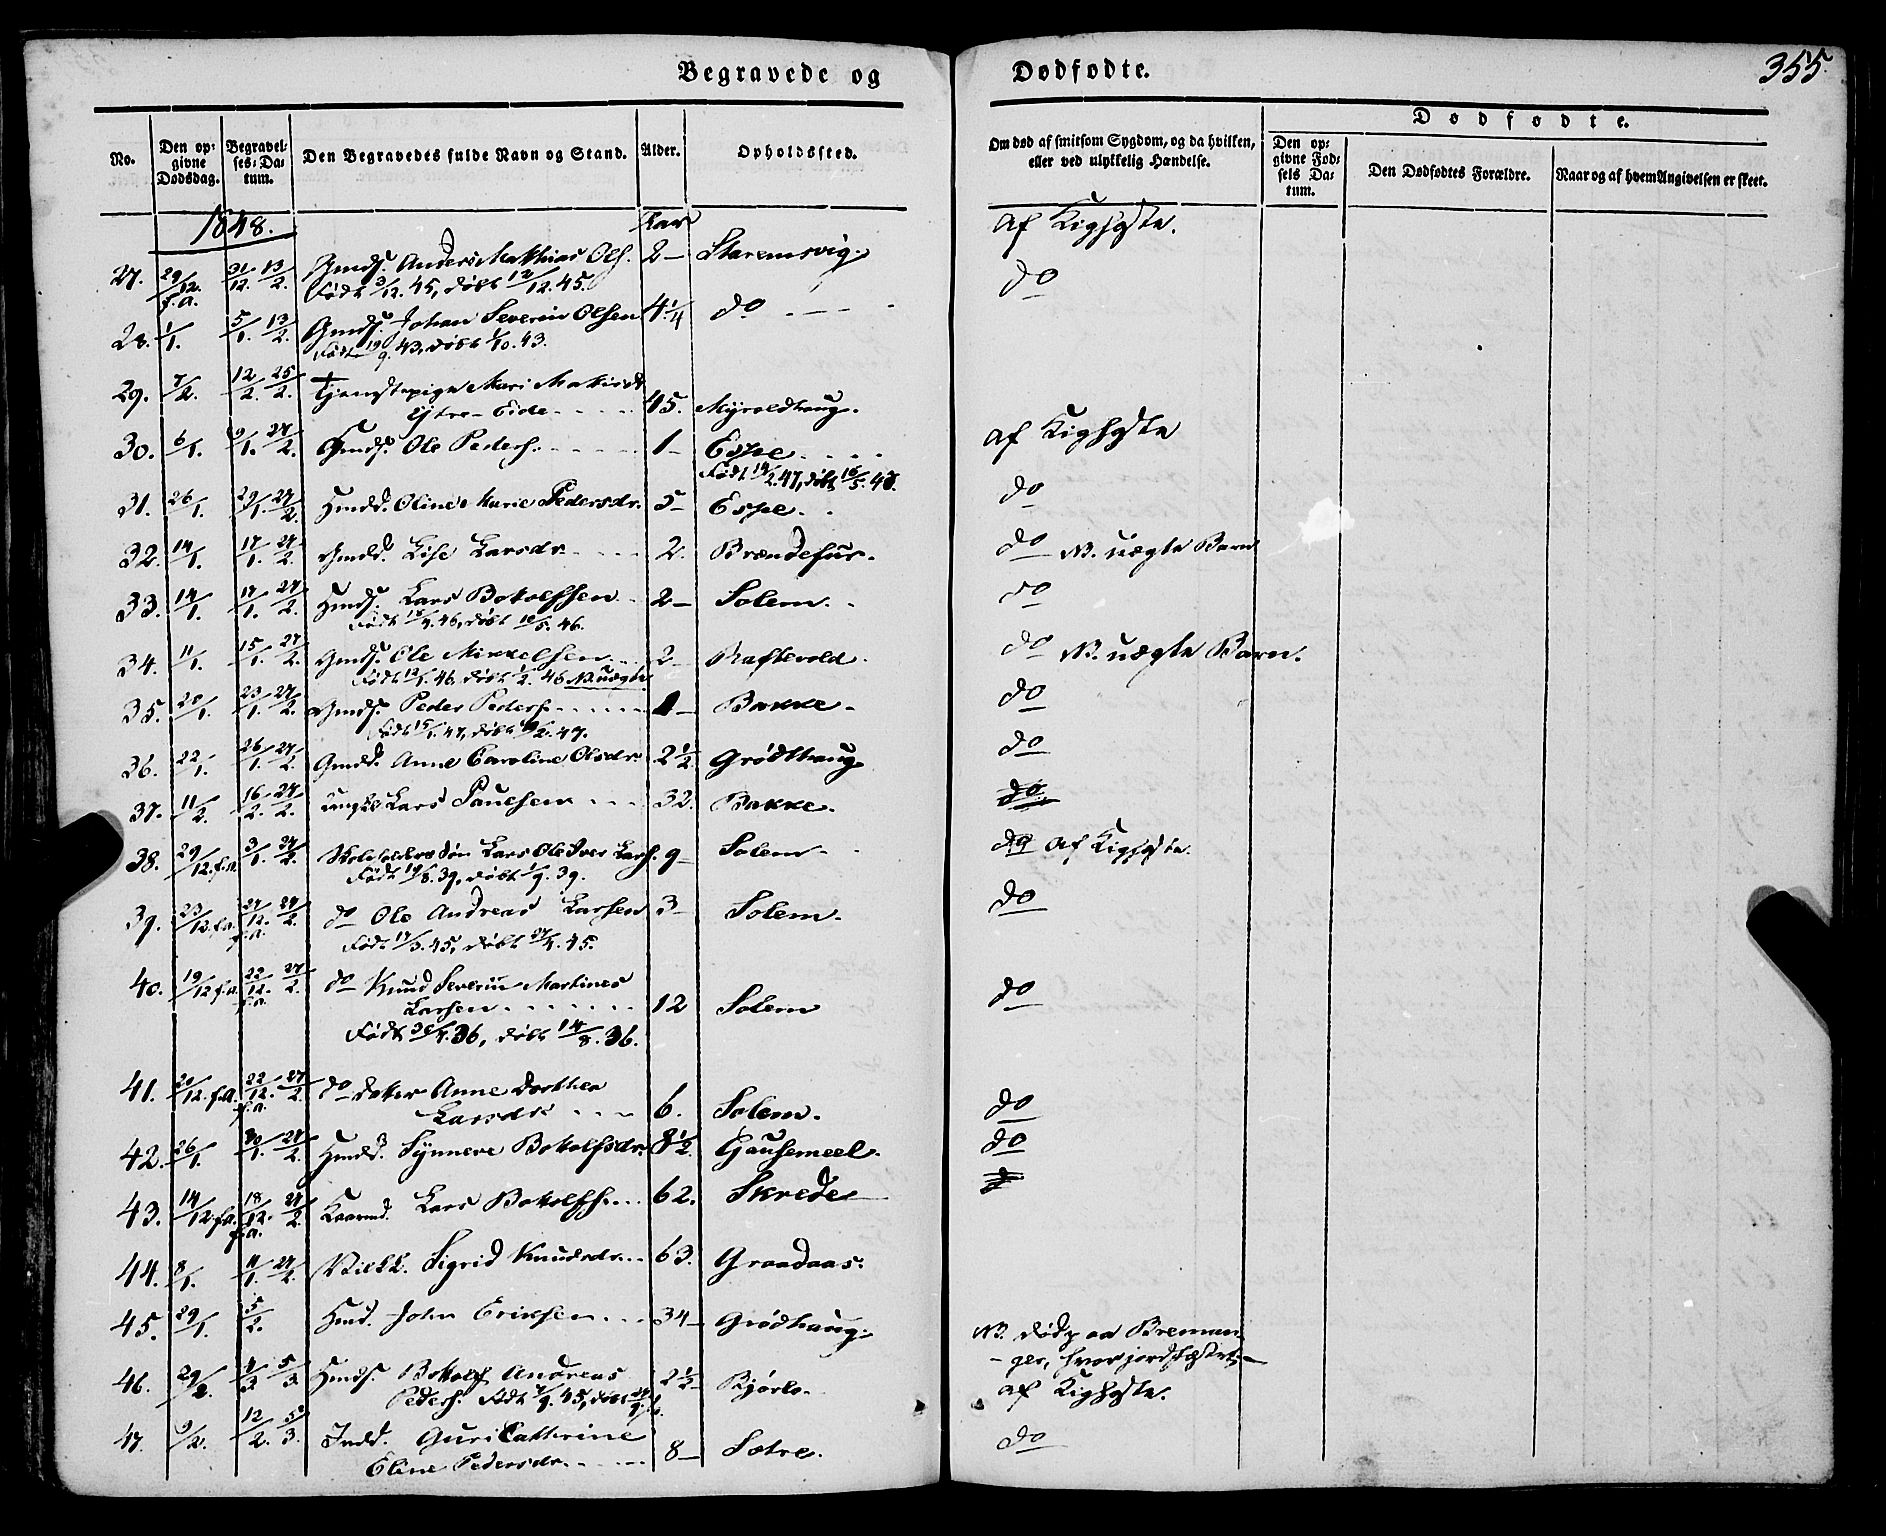 Begravede og
Dødfødte.
355.
No.
Den opgivne Dødsdag.
Begravelses-Datum.
Den Begravedes fulde Navn og Stand.
Alder.
Opholdssted.
Om død af smitsom Sygdom, og da hvilken, eller ved ulykkelig Hændelse.
Dødfødte.
Den opgivne Fødsels Datum.
Den Dødfødtes Forældre.
Naar og af hvem Angivelsen er skeet.
1848.
27. 29/12. f.a. 31/12. 13/2. Gmds. Anders Mathias Ols. 2– Staremsvig. af Kighoste.
Født 3/12. 45, døbt 12/12. 45. do
28. 1/1. 5/1. 13/2. Gmds. Johan Severin Olsen 4 1/4 do
Født 19/9. 43, døbt 1/10. 43.
29. 7/2. 12/2. 25/2. Tjenestepige Mari
Ytre-Eide 45. Myroldhaug.
30. 6/1. 9/1. 27/2. Gmds. Ole Peders. 1– Espe af Kighoste
Født 14/2. 47, døbt 16/5. 47.
31. 26/1. 29/1. 27/2. Hmdd. Oline Marie Pedersdr. 5– Espe. do
32. 14/1. 17/1. 27/2. Gmdd. Lise Larsdr. 2. Brændefur. do NB. uægte Barn
33. 14/1. 17/1. 27/2. Hmds. Lars Botolfsen 2– Solem. do
Født 18/4. 46, døbt 10/5. 46.
34. 11/1. 15/1. 27/2. Gmds. Ole Mikkelsen 2– Raftevold. do NB. uægte Barn.
Født 12/1. 46, døbt 1/2. 46 NB. uægte
35. 20/1. 23/1. 27/2. Gmds. Peder Peders. 1– Bakke. do
Født 15/1. 47, døbt /2. 47.
36. 22/1. 26/1. 27/2. Gmdd. Anne Caroline Olsdr. 2 1/2 Grødthaug do
37. 11/2. 16/2. 27/2. Ungkl. Lars Paulsen 32. Bakke. do
38. 29/12. f.a. 3/1. 27/2. Skoleholders Søn Lars Ole Iver Lars. 9– Solem. do af Kighoste.
Født 19/8. 39, døbt 1/9. 39.
39. 23/12. f.a. 27/12. f.a. 27/2. do Ole Andreas Larsen 3– Solem. do
Født 17/3. 45, døbt 27/4. 45.
40. 19/12 f.a. 22/12. f.a. 27/2. do Knud Severin Martines
Larsen 12 Solem do
Født 30/7. 36, døbt 14/8. 36.
41. 20/12. f.a. 22/12. f.a. 27/2. do doter Anne Dorthea
Larsdr. 6. Solem. do
42. 26/1. 30/1. 27/2. Hmdd. Synneve Botolfsdr. 8 1/2. Gausemeel. do
43. 14/12. f.a. 18/12. f.a. 27/2. Kaarmd. Lars Botolfs. 62. Skrede
44. 8/1. 11/1. 27/2. Sigrid Knudsdr. 63. Graadaas.
45. 29/1. 5/2. Hmd. John Eriksen 34– Grødthaug. NB. død paa Bremanger, hvor jordfæstet
46. 29/2. 4/3 5/3 Hmds. Botolf Andreas
Peders. Født /9. 45, døbt /9. 2 1/2 Bjørlo. af Kighoste.
47. 9/2. 12/2. 5/3. Indd. Guri Cathrine
Eline Pedersdr. 8– Sætre. do